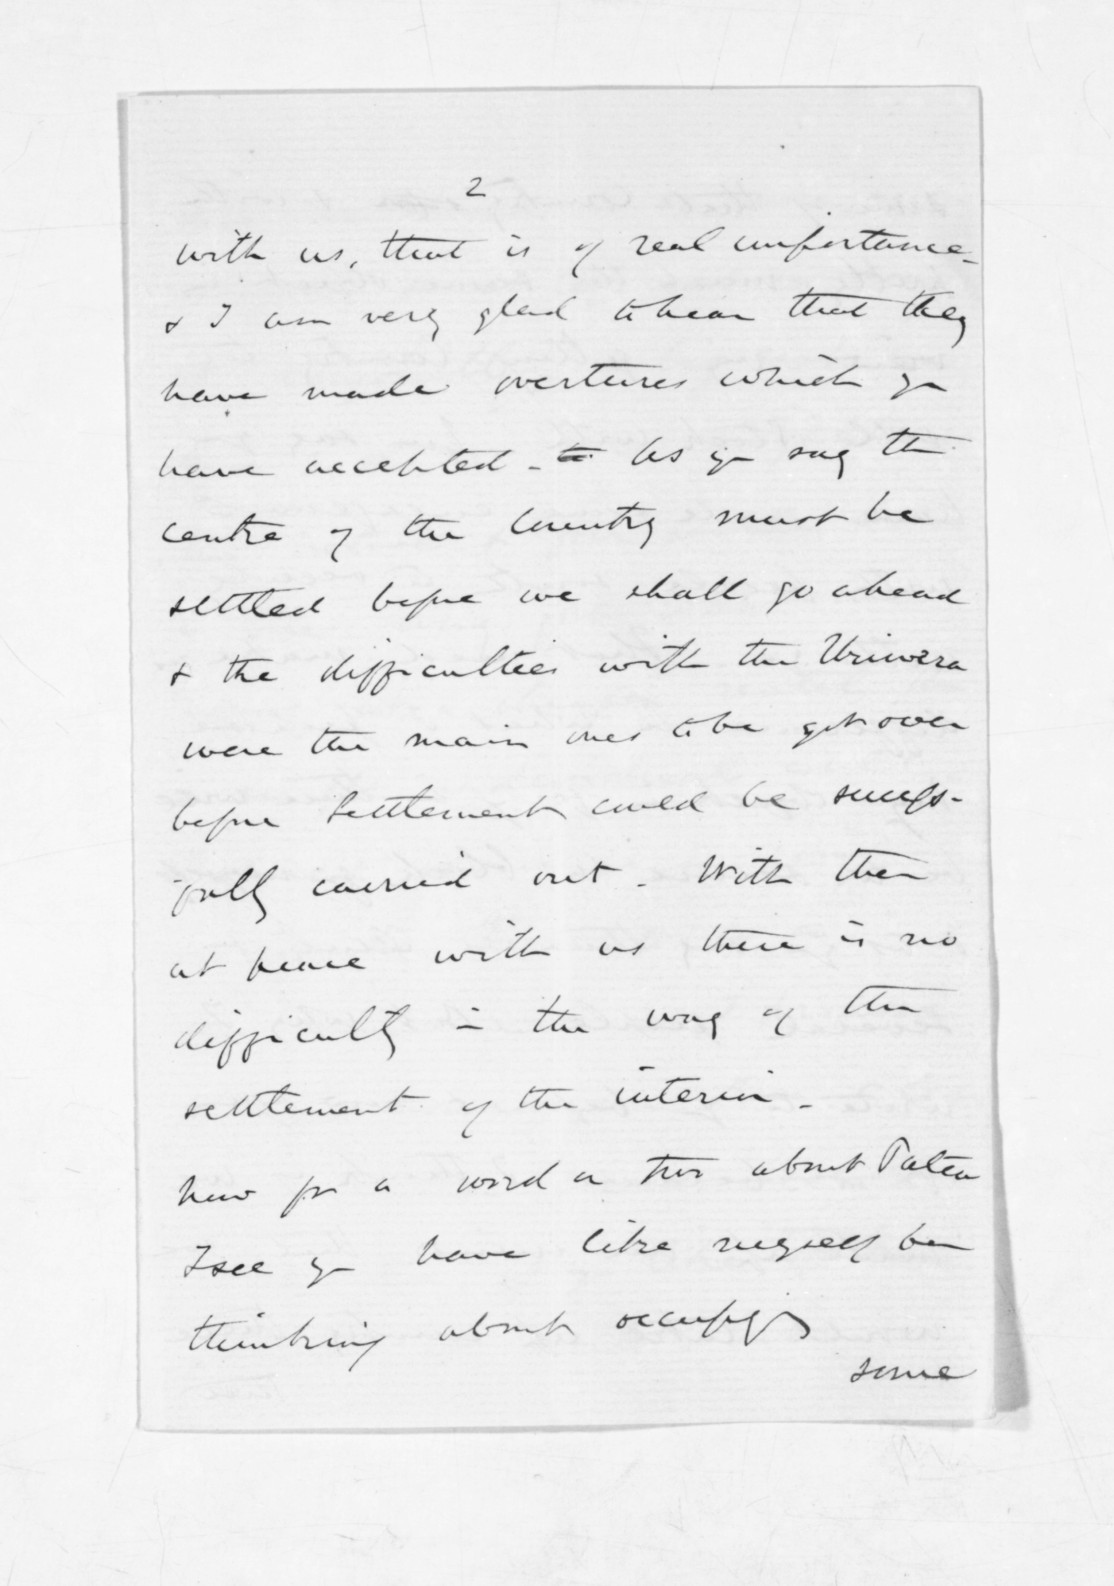 2
with us, that is of real importance -
& I am very glad to hear that they
have made overtures which you
have accepted - As you say the
centre of the Country must be
settled before we shall go ahead
& the difficulties with the Uriwera
were the main ones to be got over
before Settlement could be success-
fully carried out. With them
at peace with us there is no
difficulty in the way of the
settlement of the interior -
now for a word or two about Patea
I see you have like myself been
thinking about occupying
some